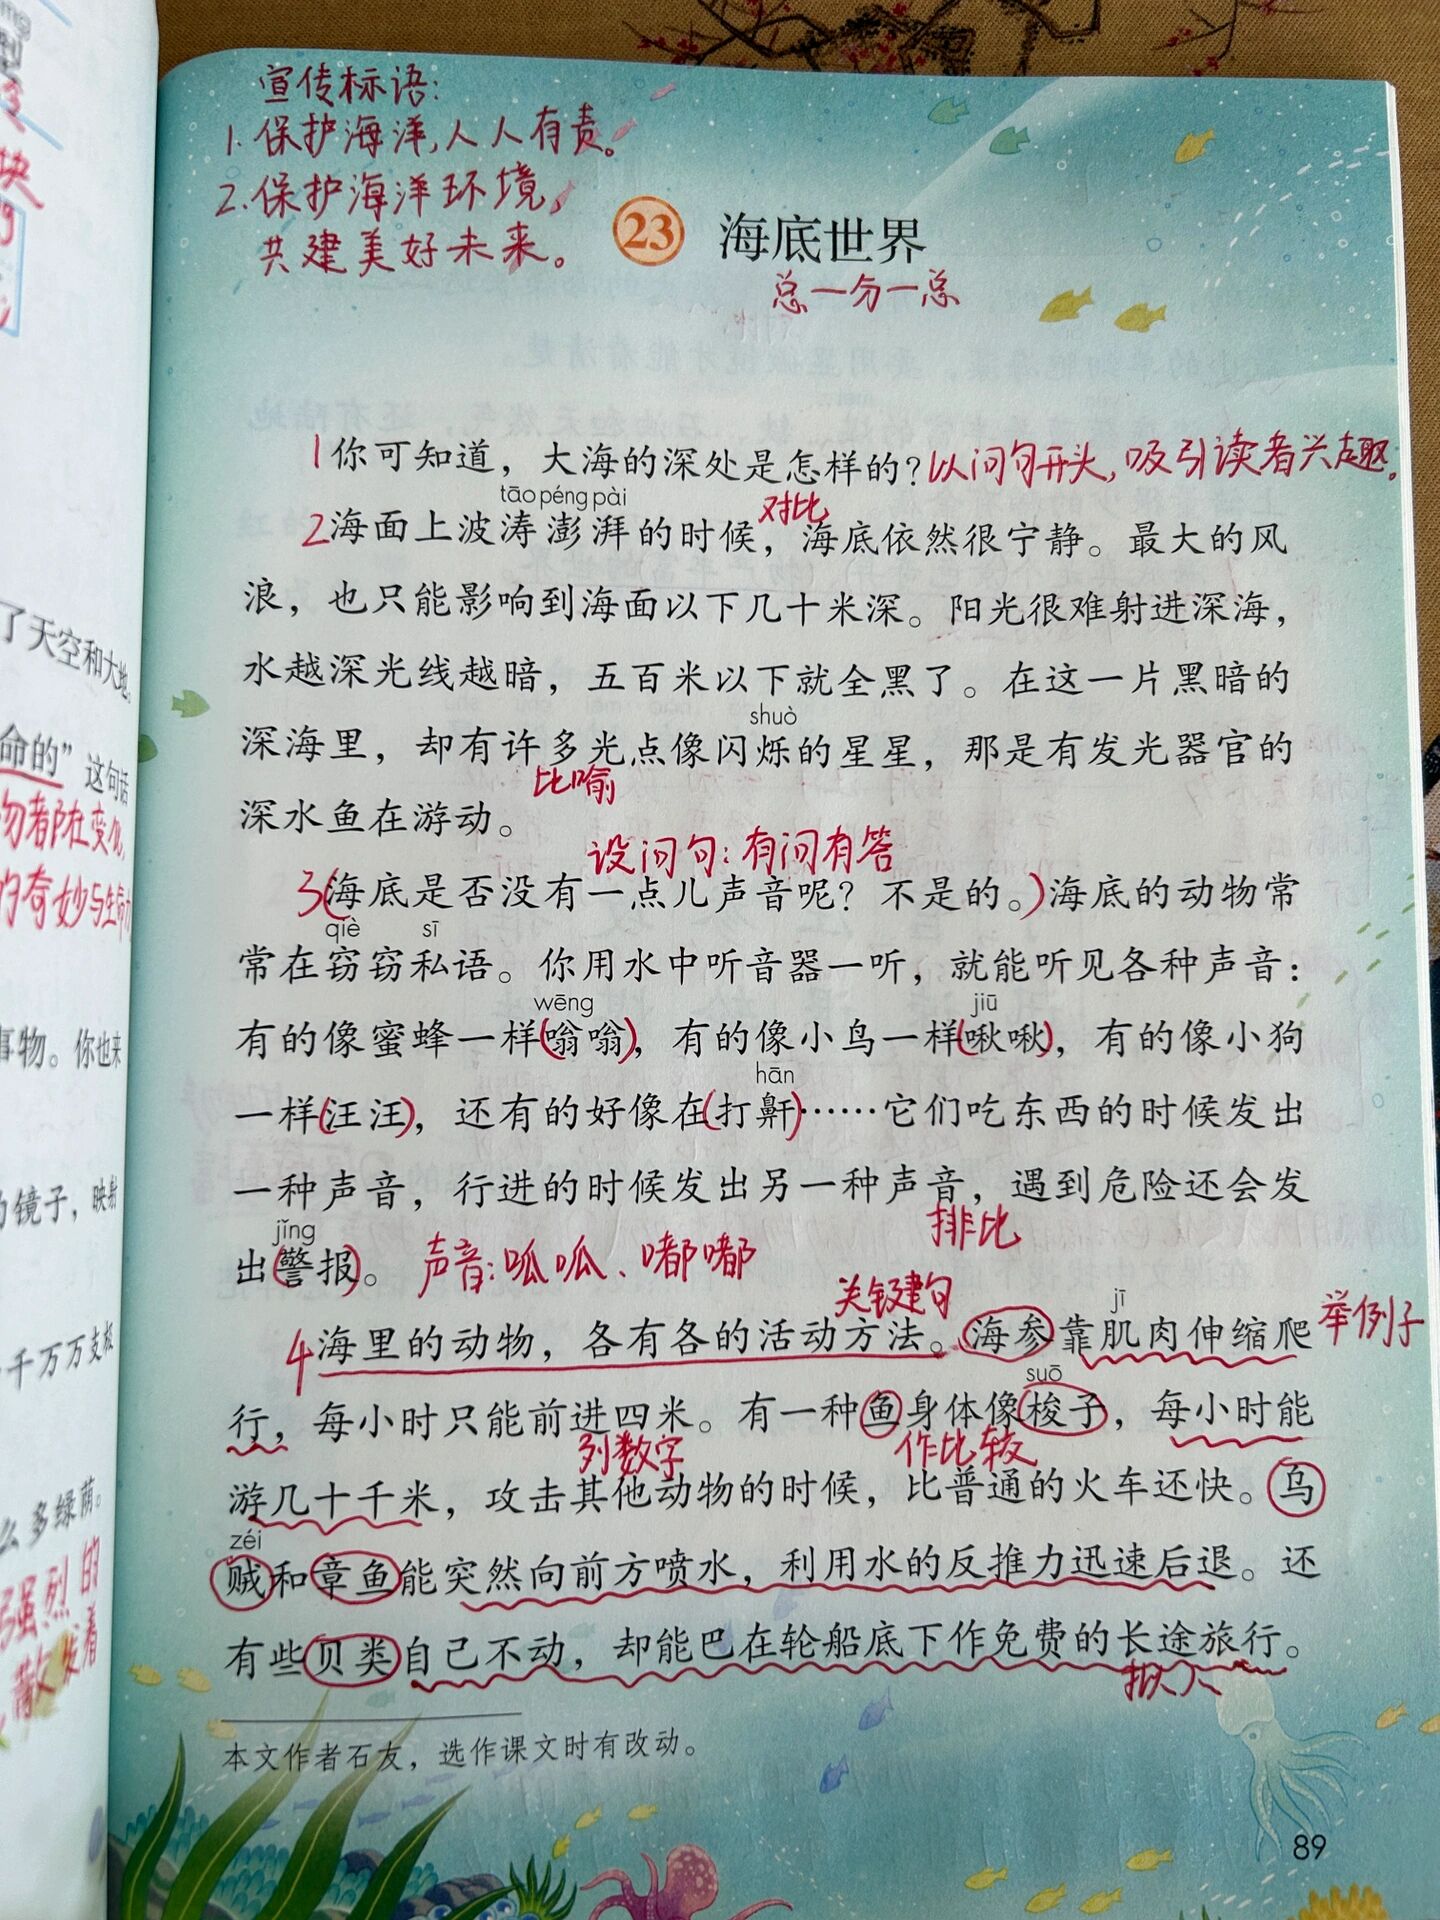 宣传标语:
1.保护海洋,人人有责。
2.保护海洋环境,
共建美好未来。
23 海底世界
总一分一总
1你可知道，大海的深处是怎样的？以问句开头,吸引读者兴趣。
tāo péng pài
对比
2海面上波涛澎湃的时候，海底依然很宁静。最大的风
浪，也只能影响到海面以下几十米深。阳光很难射进深海，
水越深光线越暗，五百米以下就全黑了。在这一片黑暗的
shuò
深海里，却有许多光点像闪烁的星星，那是有发光器官的
比喻
深水鱼在游动。
设问句:有问有答
3(海底是否没有一点儿声音呢？不是的。)海底的动物常
qiè sī
常在窃窃私语。你用水中听音器一听，就能听见各种声音：
wēng jiū
有的像蜜蜂一样(嗡嗡)，有的像小鸟一样(啾啾)，有的像小狗
hān
一样(汪汪)，还有的好像在(打鼾)……它们吃东西的时候发出
一种声音，行进的时候发出另一种声音，遇到危险还会发
jǐng
排比
出(警报)。声音:呱呱、嘟嘟
关键句
jī
4海里的动物，各有各的活动方法。海参靠肌肉伸缩爬 举例子
suō
行，每小时只能前进四米。有一种鱼身体像梭子，每小时能
列数字 作比较
游几十千米，攻击其他动物的时候，比普通的火车还快。乌
zéi
贼和章鱼能突然向前方喷水，利用水的反推力迅速后退。还
有些贝类自己不动，却能巴在轮船底下作免费的长途旅行。
拟人
本文作者石友，选作课文时有改动。
89
了天空和大地
命的”这句话
事物。你也来
镜子，映射
千万万支
么多绿荫。
强烈的